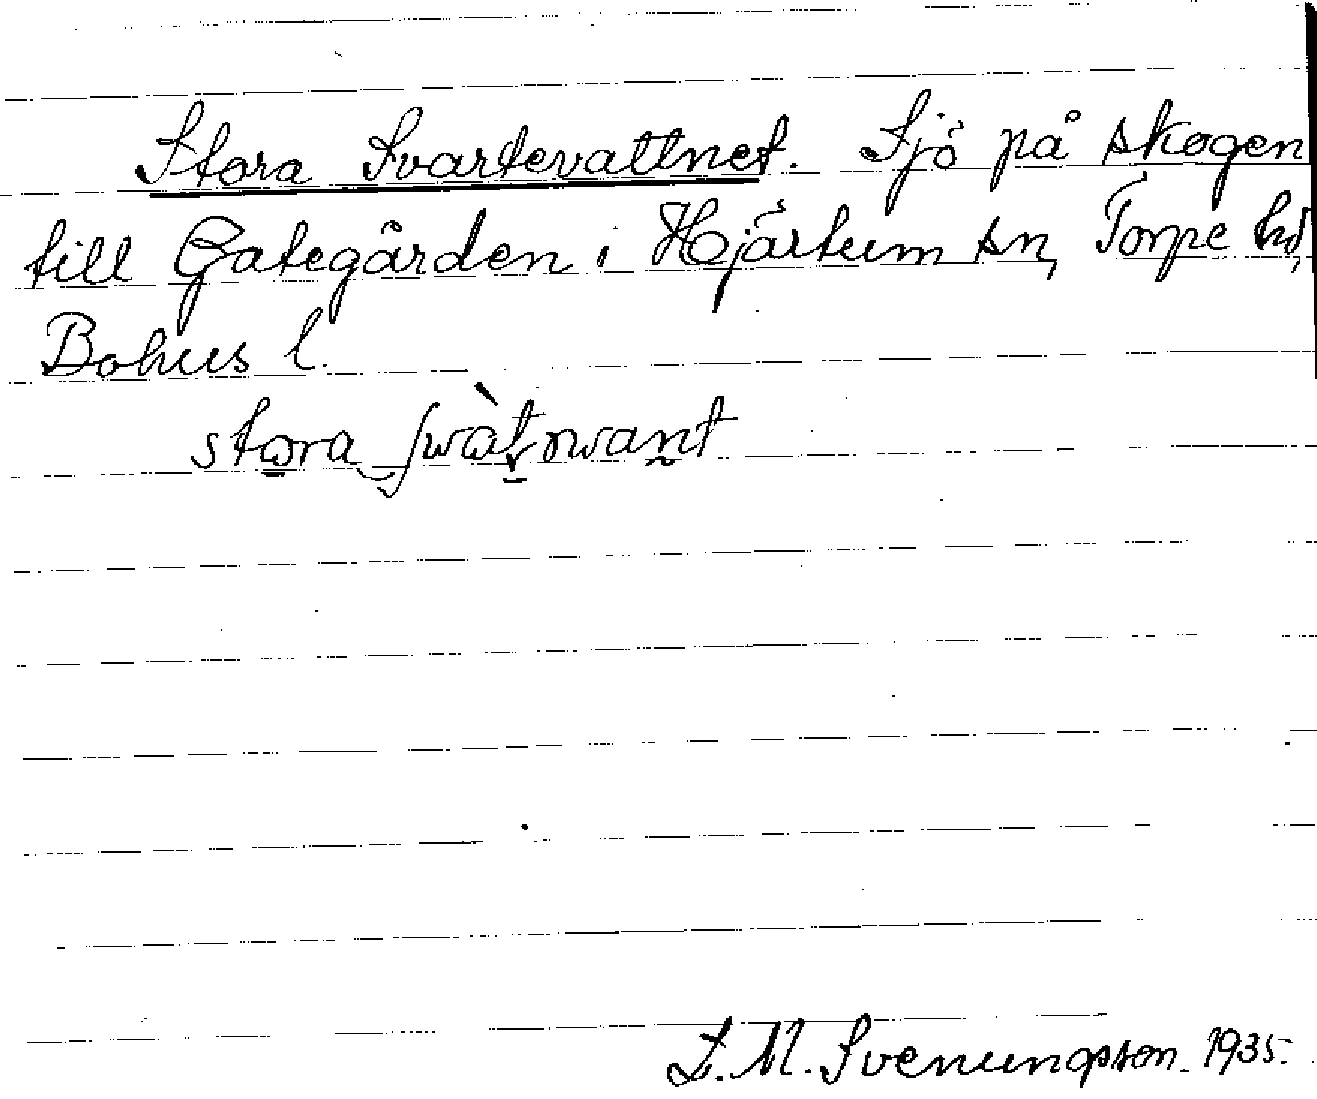 Stora Svartevattnet. Sjö på skogen
till Gategården i Hjärtum sn, Torpe hd,
Bohus l.
stora
L. M. Svenungsson. 1935.